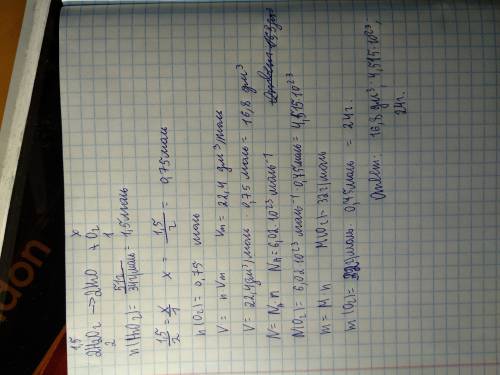 1,5 x
2H2O2 → 2H2O + O2
2 1
n(H2O2) = 51г / 34г/моль = 1,5моль
1,5/2 = x/1 x = 1,5/2 = 0,75 моль
n(O2) = 0,75 моль
V = n Vm Vm = 22,4 дм³/моль
V = 22,4дм³/моль · 0,75 моль = 16,8 дм³
N = NA n NA = 6,02·10²³ моль⁻¹
N(O2) = 6,02·10²³ моль⁻¹ · 0,75моль = 4,515·10²³
m = M n M(O2) = 32г/моль
m(O2) = 32г/моль · 0,75моль = 24г.
Ответ: 16,8 дм³; 4,515·10²³;
24г.